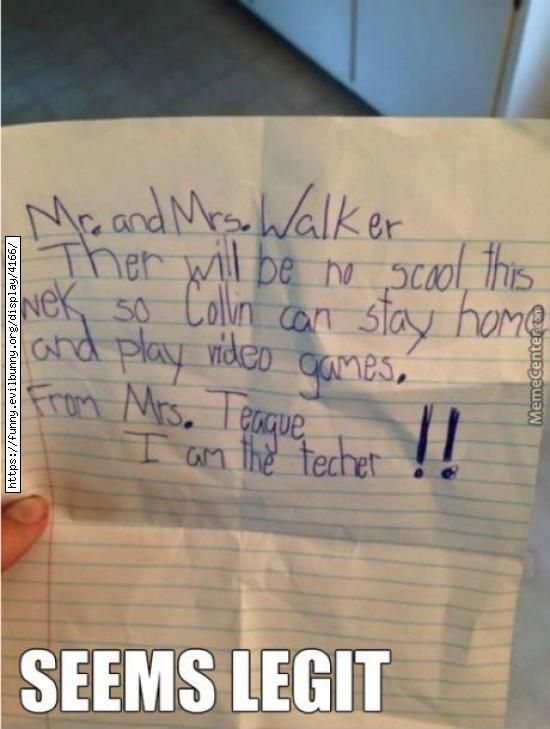 Mr. and Mrs. Walker
Ther will be no scool this
wek so Collin can stay home
and play video games.
From Mrs. Teague
I am the techer !!
SEEMS LEGIT
https://funny.evilbunny.org/display/4166/
MemeCenter.com